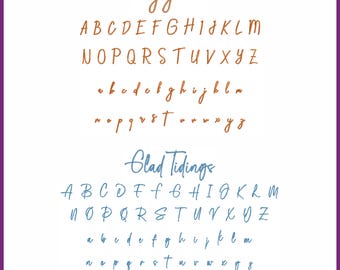 A B C D E F G H I J K L M
N O P Q R S T U V W X Y Z
a b c d e f g h i j k l m
n o p q r s t u v w x y z
Glad Tidings
A B C D E F G H I J K L M
N O P Q R S T U V W X Y Z
a b c d e f g h i j k l m
n o p q r s t u v w x y z